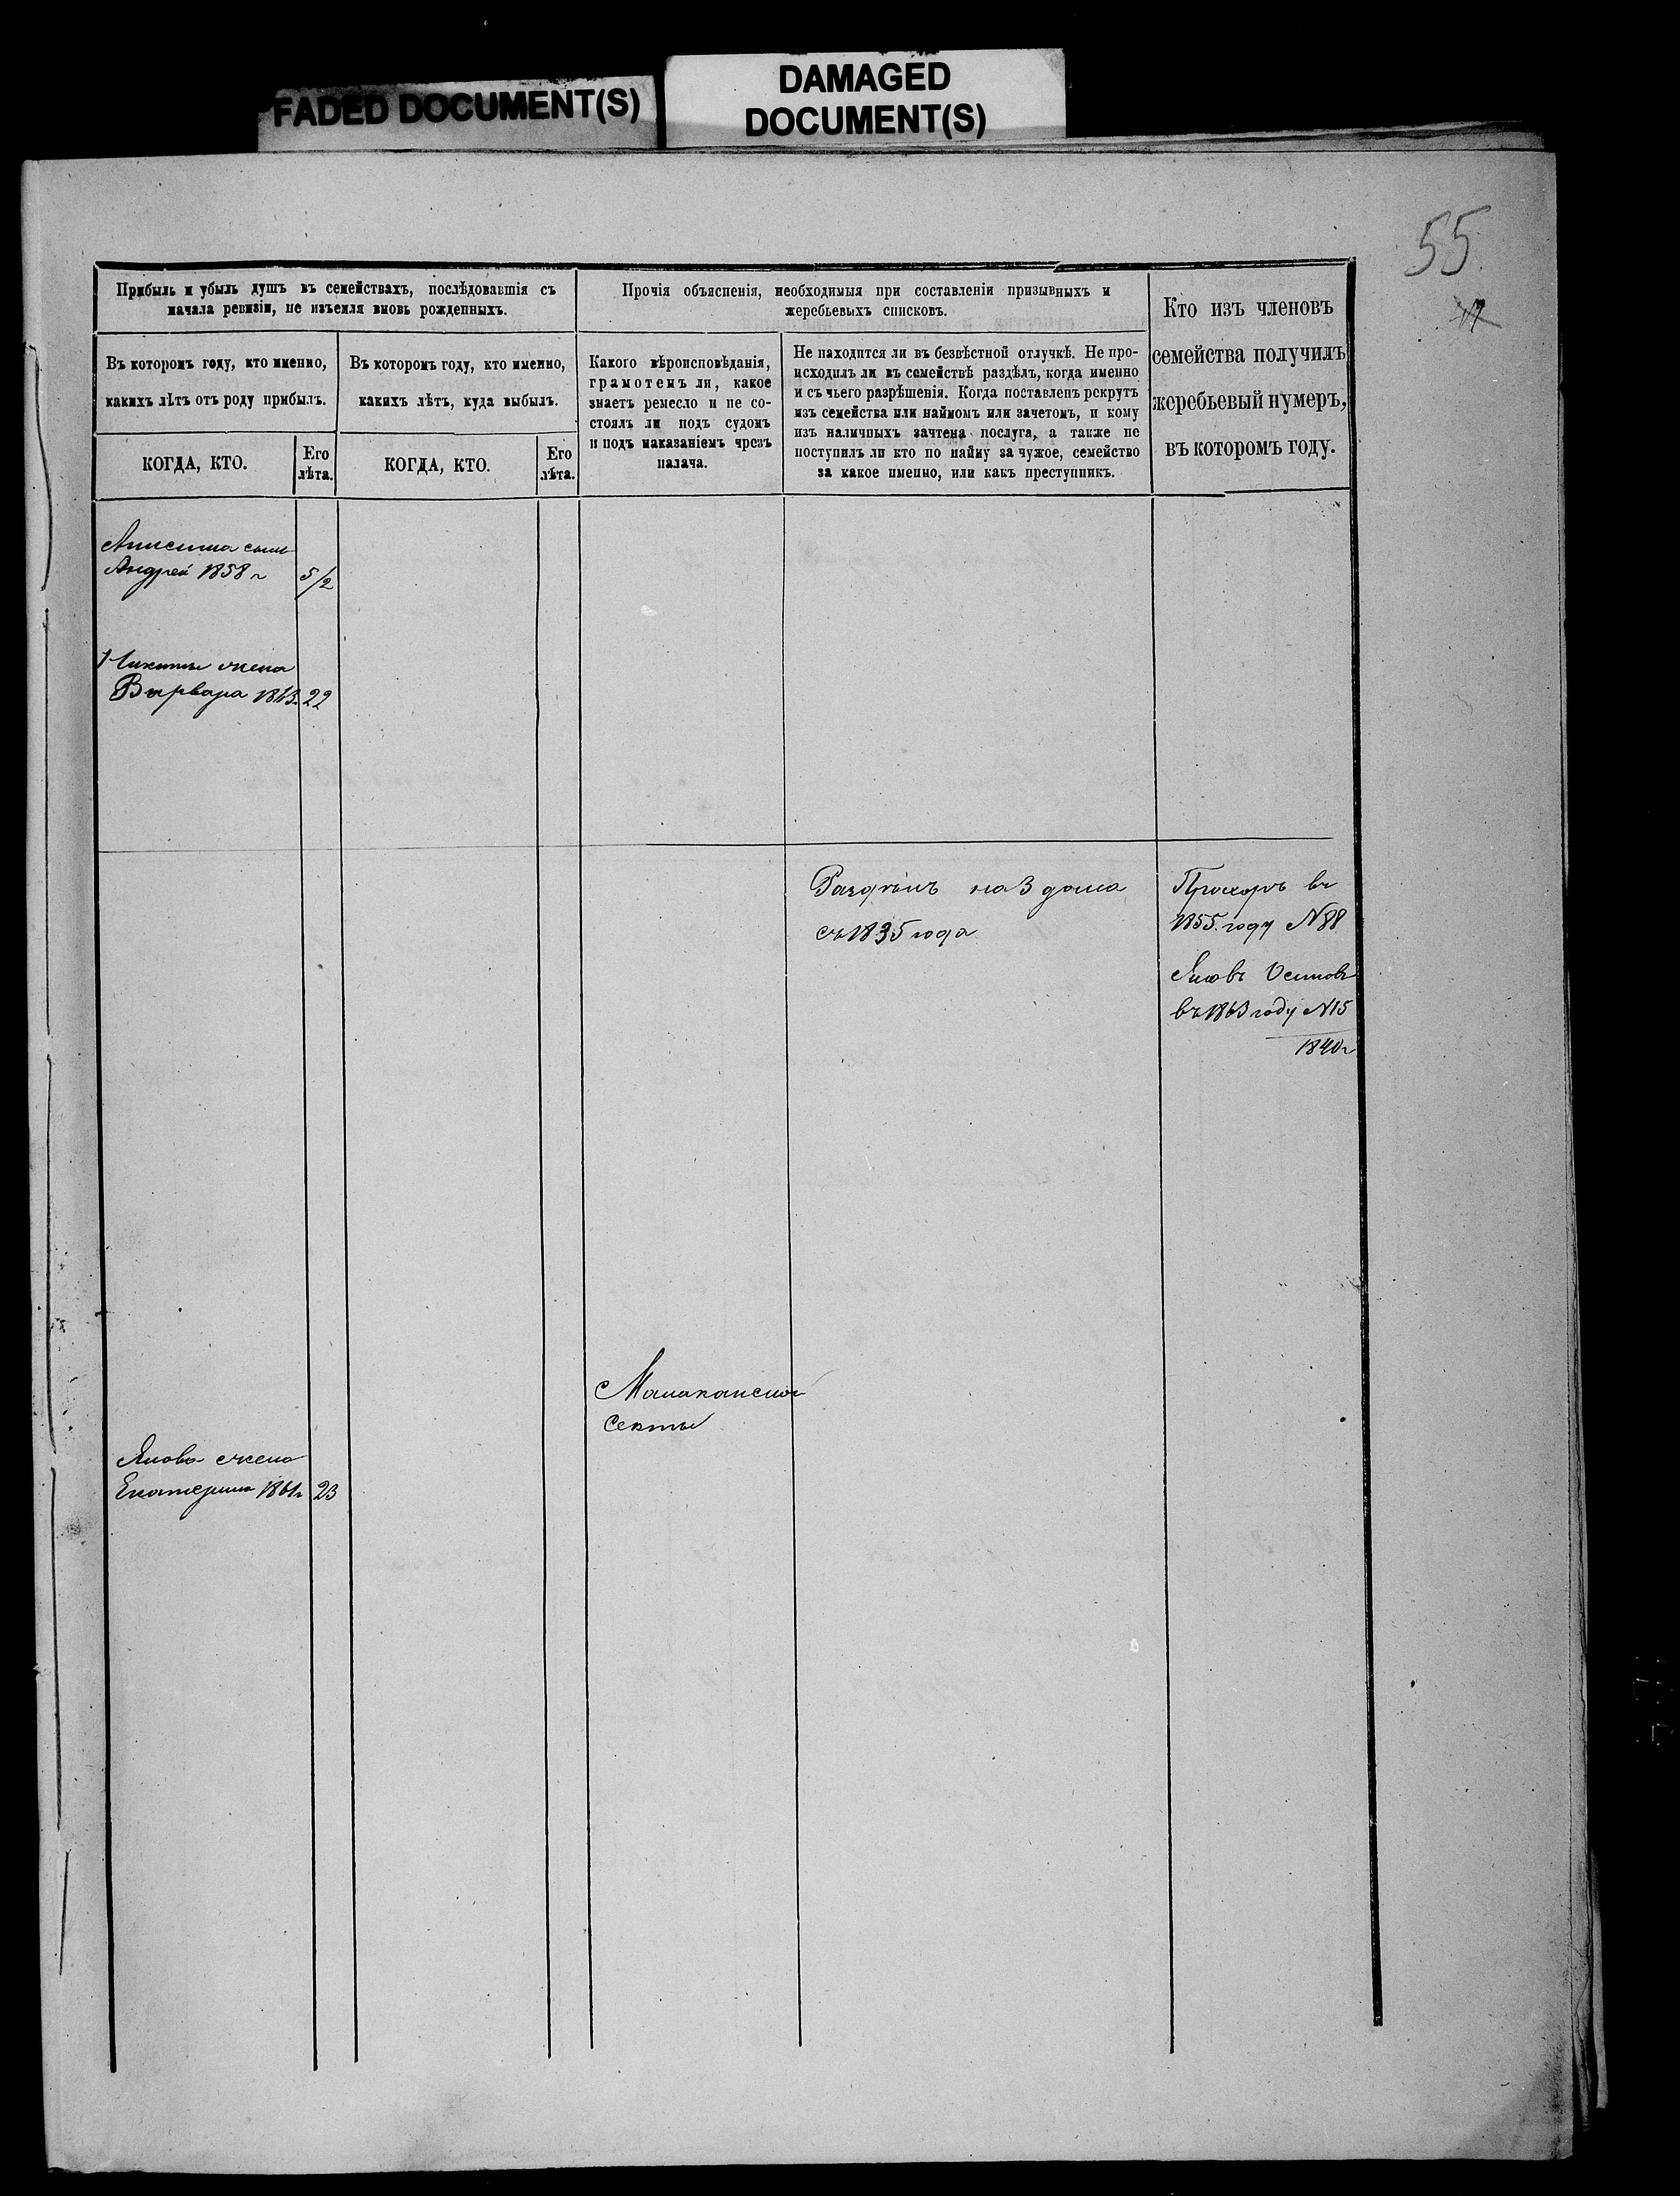 FADED DOCUMENT(S)
DAMAGED
DOCUMENT(S)
55
Прибыль и убыль душъ въ семействахъ, послѣдовавшія съ
начала ревизіи, не изъемля вновь рожденныхъ.
Въ которомъ году, кто именно,
какихъ лѣтъ отъ роду прибылъ.
КОГДА, КТО.
Его
лѣта.
Въ которомъ году, кто именно,
какихъ лѣтъ, куда выбылъ.
КОГДА, КТО.
Его
лѣта.
Прочія объясненія, необходимыя при составленіи призывныхъ и
жеребьевыхъ списковъ.
Какого вѣроисповѣданія,
грамотенъ ли, какое
знаетъ ремесло и не со-
стоялъ ли подъ судомъ
и подъ наказаніемъ чрезъ
палача.
Не находится ли въ безвѣстной отлучкѣ. Не про-
исходилъ ли въ семействѣ раздѣлъ, когда именно
и съ чьего разрѣшенія. Когда поставленъ рекрутъ
изъ семейства или наймомъ или зачетомъ, и кому
изъ наличныхъ зачтена послуга, а также не
поступилъ ли кто по найму за чужое, семейство
за какое именно, или какъ преступникъ.
Кто изъ членовъ
семейства получилъ
жеребьевый нумеръ,
въ которомъ году.
Анисима сынъ
Андрей 1858 г 5/2
Никиты жена
Варвара 1863. 22
Раздѣлъ на 3 дома
съ 1835 года
Прохоръ въ
1855. году N 88
Яковъ Осиповъ
въ 1863 году N 15
1840 г
Малаканской
Секты
Якова жена
Екатерина 1861 г 23